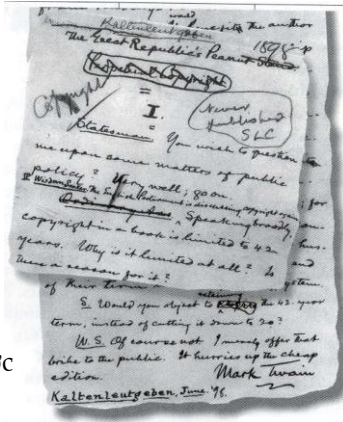 would
the author
Kaltenleutgeben
1898
The Great Republic's Peanut Stand
Perpetual Copyright
Copyright
I.
Never
published
SLC
Statesman You wish to question
me upon some matters of public
policy? Very well; go on.
Wisdom Seeker. The English Parliament is discussing copyright
Speaking broadly,
copyright in a book is limited to 42
years. Why is it limited at all? Is
there a reason for it?
of their term
S. Would you object to retaining the 42-year
term, instead of cutting it down to 20?
W.S. Of course not. I merely offer that
bribe to the public. It hurries up the cheap
edition.
Mark Twain
Kaltenleutgeben, June '98.